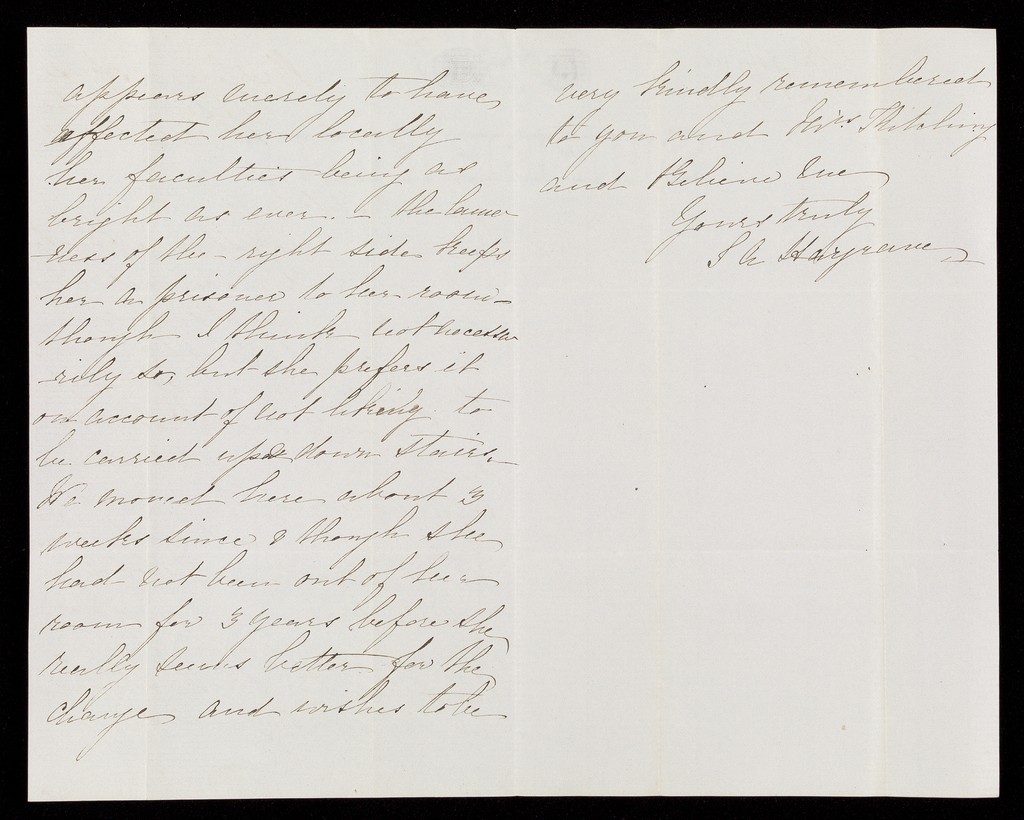 appears merely to have
affected her locally
her faculties being as
bright as ever. – the lame
-ness of the right side keeps
her a prisoner to her room –
though I think not necessa
-rily so, but she prefers it
on account of not liking to
be carried up & down stairs.
We moved here about 3
weeks since & though she
had not been out of her
room for 3 years before she
really seems better for the
change and wishes to be
very kindly remembered
to you and Mrs
and Believe me
Yours truly
Hargrave